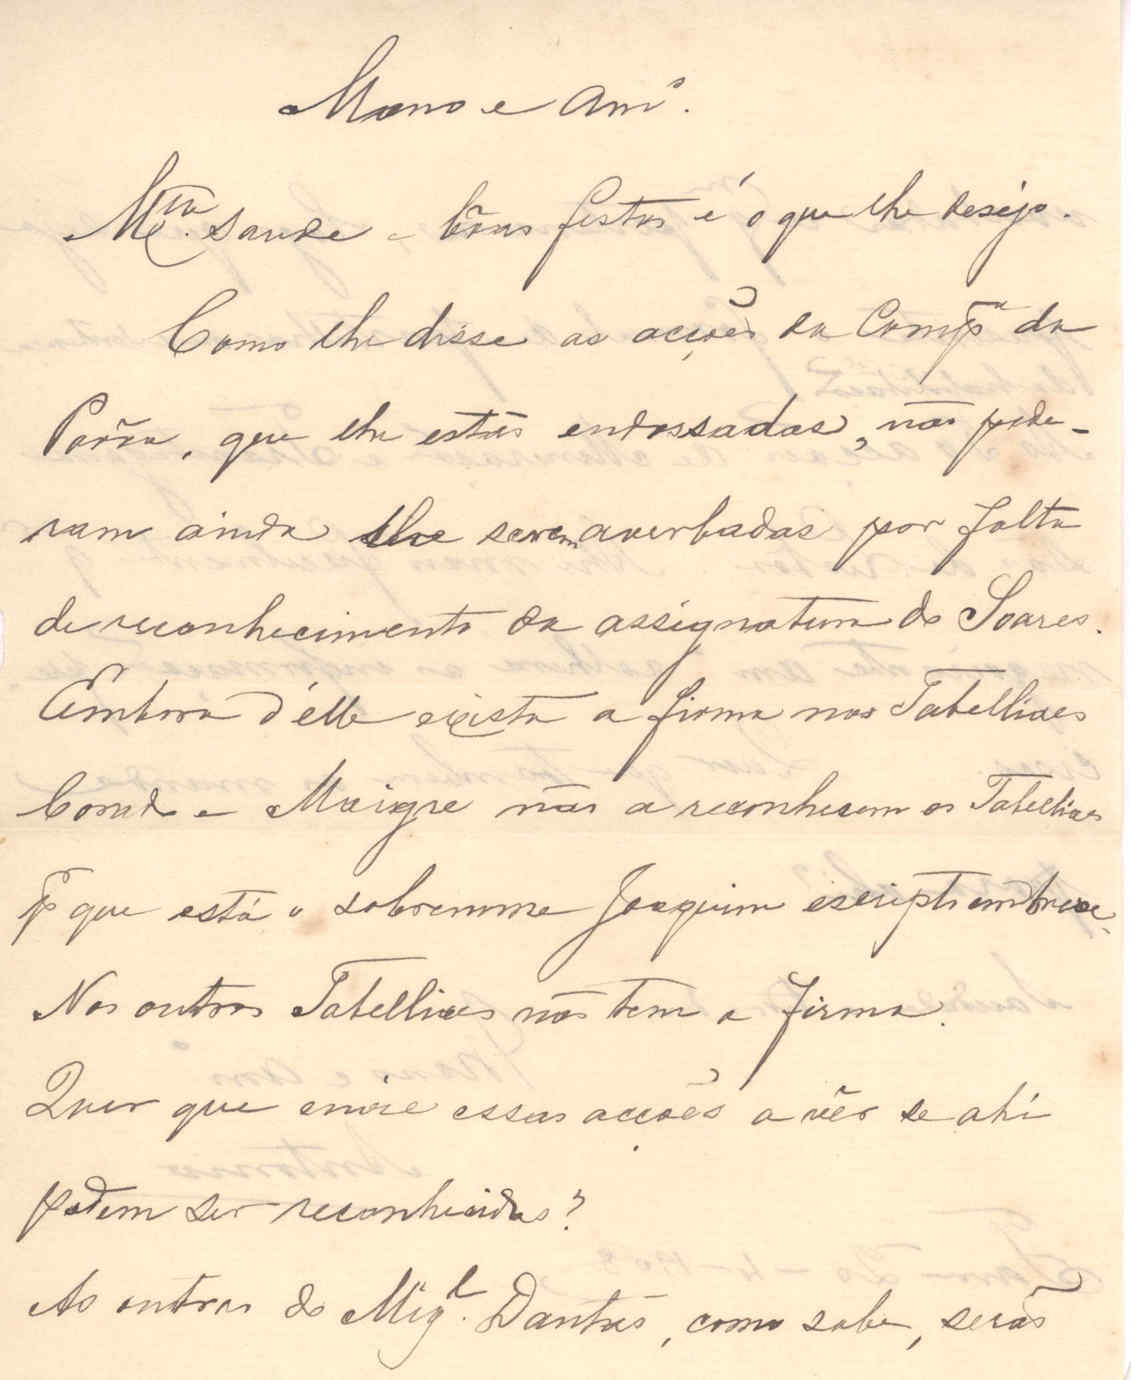 Mano e Amº.
Mta. Saude e bôas festas é o que lhe desejo.
Como lhe disse as acções da Compª da
Pavôa, que lhe estão endossadas, não pode-
ram ainda lhe serem averbadas por falta
de reconhecimento da assignatura do Soares.
Embora d'élle exista a firma nos Tabelliaes
e Maigre não a reconhecem os Tabelliaes
pº que está o sobrenome Joaquim escripto em breve.
Nos outros Tabelliaes não tem a firma.
Quer que envie essas acções a vêr se ahi
podem ser reconhecidas?
As outras do Migl. Dantas, como sabe, serão